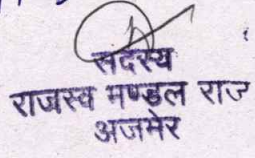 सदस्य
राजस्व मण्डल राज
अजमेर